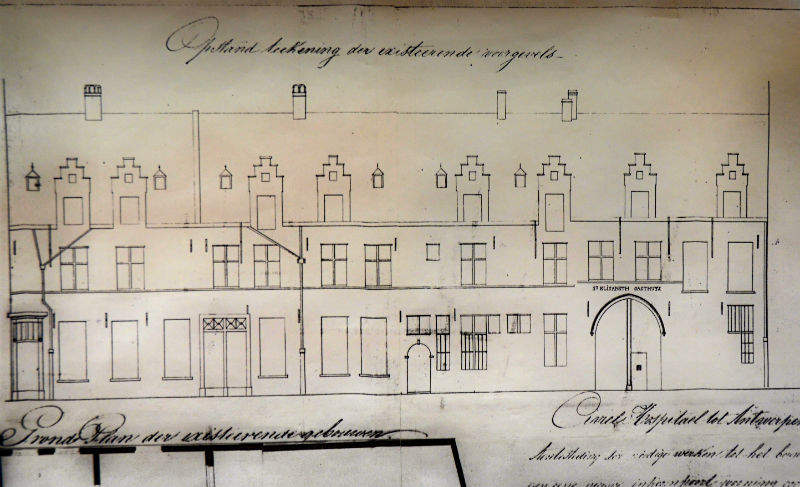 Opstand teekening der existeerende voorgevels
ST ELISABETH GASTHUYS
Grond Plan der existeerende gebouwen
Civiel Hospitael tot Antwerpen
Aenbesteding der nodige werken tot het
van eene nieuwe